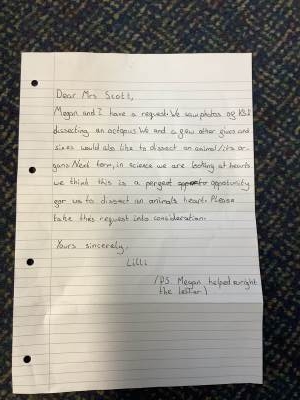 Dear Mrs Scott,
Megan and I have a request. We saw photos of KS3
dissecting an octopus. We and a few other fives and
sixes would also like to dissect an animal/its or-
gans. Next term, in science we are looking at hearts
we think this is a perfect opportunity
for us to dissect an animals heart. Please
take this request into consideration.
Yours sincerely,
Lilli
(P.S. Megan helped wright
the letter)